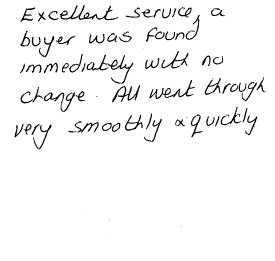 Excellent service, a
buyer was found
immediately with no
change. All went through
very smoothly & quickly